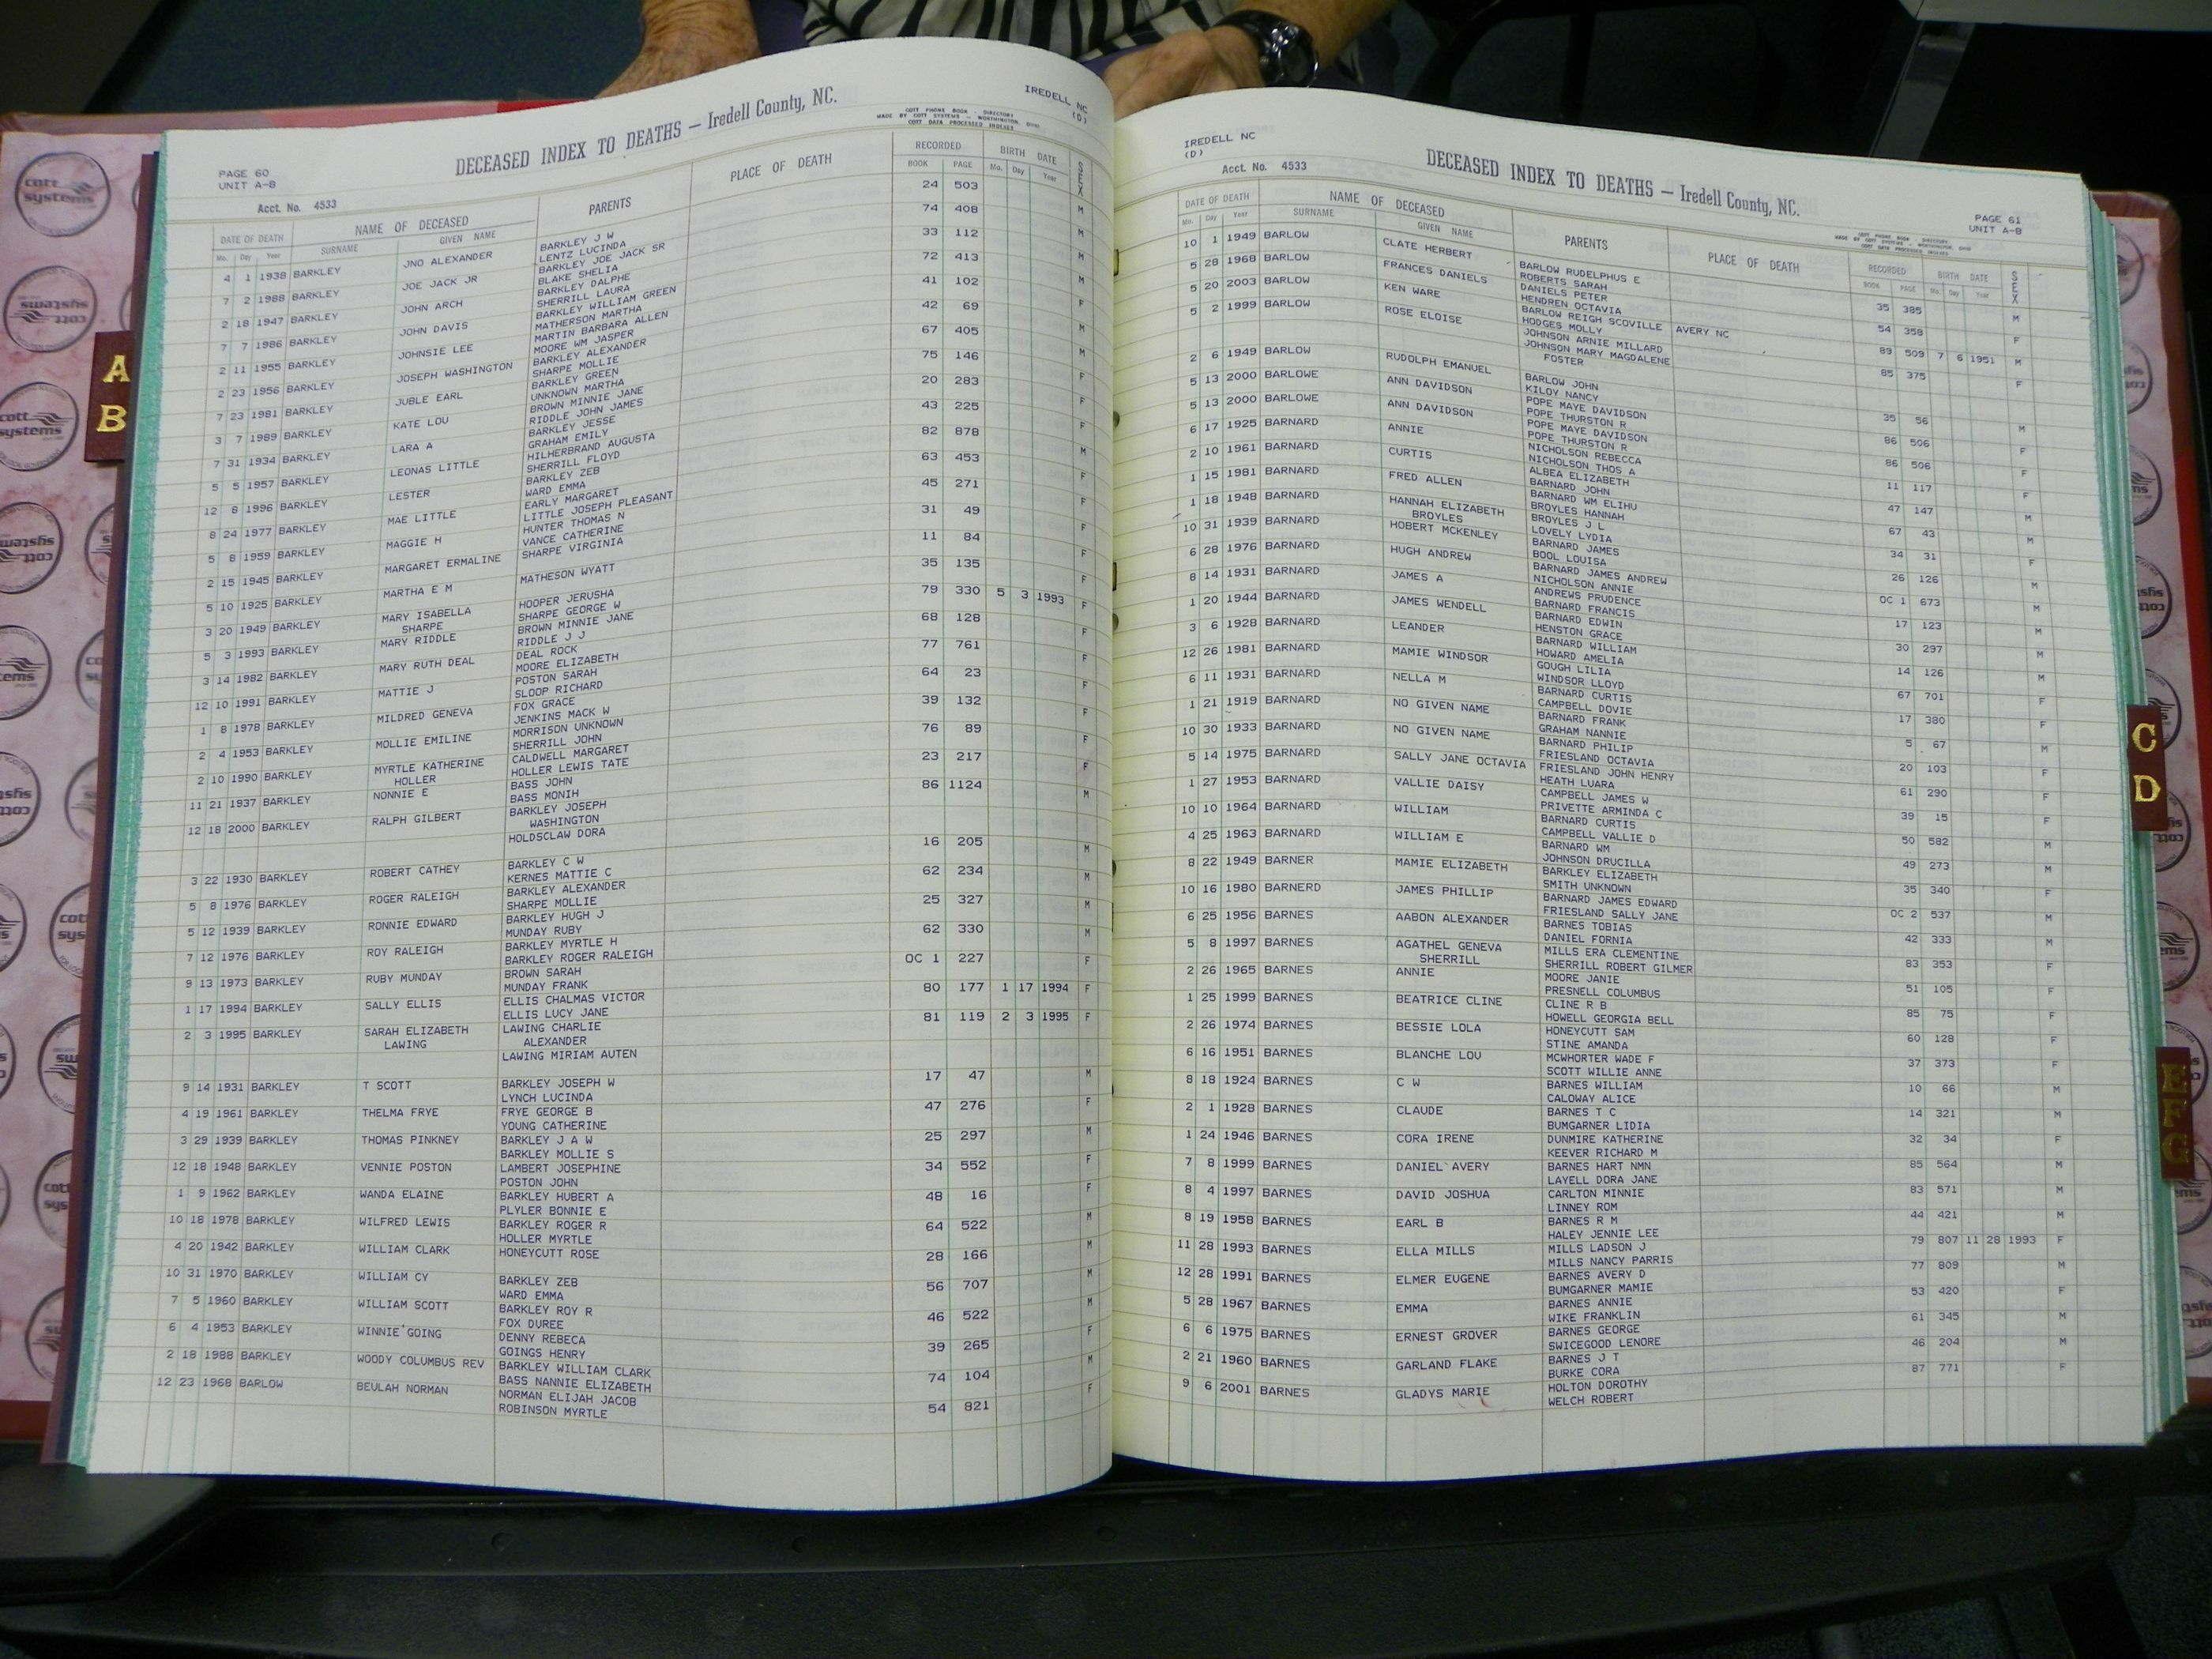 PAGE 60
UNIT A-B
DECEASED INDEX TO DEATHS — Iredell County, NC.
COTT PHONE BOOK - DIRECTORY
MADE BY COTT SYSTEMS - WORTHINGTON, OHIO
COTT DATA PROCESSED INDEXES
IREDELL NC
(D)
Acct. No. 4533
DATE OF DEATH NAME OF DECEASED PARENTS PLACE OF DEATH RECORDED BIRTH DATE SEX
Mo. Day Year SURNAME GIVEN NAME BOOK PAGE Mo. Day Year
4 1 1938 BARKLEY JNO ALEXANDER BARKLEY J W 24 503 M
LENTZ LUCINDA
7 2 1988 BARKLEY JOE JACK JR BARKLEY JOE JACK SR 74 408 M
BLAKE SHELIA
2 18 1947 BARKLEY JOHN ARCH BARKLEY DALPHE 33 112 M
SHERRILL LAURA
7 7 1986 BARKLEY JOHN DAVIS BARKLEY WILLIAM GREEN 72 413 M
MATHERSON MARTHA
2 11 1955 BARKLEY JOHNSIE LEE MARTIN BARBARA ALLEN 41 102 F
MOORE WM JASPER
2 23 1956 BARKLEY JOSEPH WASHINGTON BARKLEY ALEXANDER 42 69 M
SHARPE MOLLIE
7 23 1981 BARKLEY JUBLE EARL BARKLEY GREEN 67 405 M
UNKNOWN MARTHA
3 7 1989 BARKLEY KATE LOU BROWN MINNIE JANE 75 146 F
RIDDLE JOHN JAMES
7 31 1934 BARKLEY LARA A BARKLEY JESSE 20 283 F
GRAHAM EMILY
5 5 1957 BARKLEY LEONAS LITTLE HILHERBRAND AUGUSTA 43 225 F
SHERRILL FLOYD
12 8 1996 BARKLEY LESTER BARKLEY ZEB 82 878 M
WARD EMMA
8 24 1977 BARKLEY MAE LITTLE EARLY MARGARET 63 453 F
LITTLE JOSEPH PLEASANT
5 8 1959 BARKLEY MAGGIE H HUNTER THOMAS N 45 271 F
VANCE CATHERINE
2 15 1945 BARKLEY MARGARET ERMALINE SHARPE VIRGINIA 31 49 F
5 10 1925 BARKLEY MARTHA E M MATHESON WYATT 11 84 F
3 20 1949 BARKLEY MARY ISABELLA HOOPER JERUSHA 35 135 F
SHARPE SHARPE GEORGE W
5 3 1993 BARKLEY MARY RIDDLE BROWN MINNIE JANE 79 330 5 3 1993 F
RIDDLE J J
3 14 1982 BARKLEY MARY RUTH DEAL DEAL ROCK 68 128 F
MOORE ELIZABETH
12 10 1991 BARKLEY MATTIE J POSTON SARAH 77 761 F
SLOOP RICHARD
1 8 1978 BARKLEY MILDRED GENEVA FOX GRACE 64 23 F
JENKINS MACK W
2 4 1953 BARKLEY MOLLIE EMILINE MORRISON UNKNOWN 39 132 F
SHERRILL JOHN
2 10 1990 BARKLEY MYRTLE KATHERINE CALDWELL MARGARET 76 89 F
HOLLER HOLLER LEWIS TATE
11 21 1937 BARKLEY NONNIE E BASS JOHN 23 217 F
BASS MONIH
12 18 2000 BARKLEY RALPH GILBERT BARKLEY JOSEPH 86 1124 M
WASHINGTON
HOLDSCLAW DORA
3 22 1930 BARKLEY ROBERT CATHEY BARKLEY C W 16 205 M
KERNES MATTIE C
5 8 1976 BARKLEY ROGER RALEIGH BARKLEY ALEXANDER 62 234 M
SHARPE MOLLIE
5 12 1939 BARKLEY RONNIE EDWARD BARKLEY HUGH J 25 327 M
MUNDAY RUBY
7 12 1976 BARKLEY ROY RALEIGH BARKLEY MYRTLE H 62 330 M
BARKLEY ROGER RALEIGH
9 13 1973 BARKLEY RUBY MUNDAY BROWN SARAH OC 1 227 F
MUNDAY FRANK
1 17 1994 BARKLEY SALLY ELLIS ELLIS CHALMAS VICTOR 80 177 1 17 1994 F
ELLIS LUCY JANE
2 3 1995 BARKLEY SARAH ELIZABETH LAWING CHARLIE 81 119 2 3 1995 F
LAWING ALEXANDER
LAWING MIRIAM AUTEN
9 14 1931 BARKLEY T SCOTT BARKLEY JOSEPH W 17 47 M
LYNCH LUCINDA
4 19 1961 BARKLEY THELMA FRYE FRYE GEORGE B 47 276 F
YOUNG CATHERINE
3 29 1939 BARKLEY THOMAS PINKNEY BARKLEY J A W 25 297 M
BARKLEY MOLLIE S
12 18 1948 BARKLEY VENNIE POSTON LAMBERT JOSEPHINE 34 552 F
POSTON JOHN
1 9 1962 BARKLEY WANDA ELAINE BARKLEY HUBERT A 48 16 F
PLYLER BONNIE E
10 18 1978 BARKLEY WILFRED LEWIS BARKLEY ROGER R 64 522 M
HOLLER MYRTLE
4 20 1942 BARKLEY WILLIAM CLARK HONEYCUTT ROSE 28 166 M
10 31 1970 BARKLEY WILLIAM CY BARKLEY ZEB 56 707 M
WARD EMMA
7 5 1960 BARKLEY WILLIAM SCOTT BARKLEY ROY R 46 522 M
FOX DUREE
6 4 1953 BARKLEY WINNIE GOING DENNY REBECA 39 265 F
GOINGS HENRY
2 18 1988 BARKLEY WOODY COLUMBUS REV BARKLEY WILLIAM CLARK 74 104 M
BASS NANNIE ELIZABETH
12 23 1968 BARLOW BEULAH NORMAN NORMAN ELIJAH JACOB 54 821 F
ROBINSON MYRTLE
IREDELL NC
(D)
Acct. No. 4533
DECEASED INDEX TO DEATHS — Iredell County, NC.
PAGE 61
UNIT A-B
COTT PHONE BOOK - DIRECTORY
MADE BY COTT SYSTEMS - WORTHINGTON, OHIO
COTT DATA PROCESSED INDEXES
DATE OF DEATH NAME OF DECEASED PARENTS PLACE OF DEATH RECORDED BIRTH DATE SEX
Mo. Day Year SURNAME GIVEN NAME BOOK PAGE Mo. Day Year
10 1 1949 BARLOW CLATE HERBERT BARLOW RUDELPHUS E 35 385 M
ROBERTS SARAH
5 28 1968 BARLOW FRANCES DANIELS DANIELS PETER 54 358 F
HENDREN OCTAVIA
5 20 2003 BARLOW KEN WARE BARLOW REIGH SCOVILLE AVERY NC 89 509 7 6 1951 M
HODGES MOLLY
5 2 1999 BARLOW ROSE ELOISE JOHNSON ARNIE MILLARD 85 375 F
JOHNSON MARY MAGDALENE
FOSTER
2 6 1949 BARLOW RUDOLPH EMANUEL BARLOW JOHN 35 56 M
KILOY NANCY
5 13 2000 BARLOWE ANN DAVIDSON POPE MAYE DAVIDSON 86 506 F
POPE THURSTON R
5 13 2000 BARLOWE ANN DAVIDSON POPE MAYE DAVIDSON 86 506 F
POPE THURSTON R
6 17 1925 BARNARD ANNIE NICHOLSON REBECCA 11 117 F
NICHOLSON THOS A
2 10 1961 BARNARD CURTIS ALBEA ELIZABETH 47 147 M
BARNARD JOHN
1 15 1981 BARNARD FRED ALLEN BARNARD WM ELIHU 67 43 M
BROYLES HANNAH
1 18 1948 BARNARD HANNAH ELIZABETH BROYLES J L 34 31 F
BROYLES LOVELY LYDIA
10 31 1939 BARNARD HOBERT MCKENLEY BARNARD JAMES 26 126 M
BOOL LOUISA
6 28 1976 BARNARD HUGH ANDREW BARNARD JAMES ANDREW OC 1 673 M
NICHOLSON ANNIE
8 14 1931 BARNARD JAMES A ANDREWS PRUDENCE 17 123 M
BARNARD FRANCIS
1 20 1944 BARNARD JAMES WENDELL BARNARD EDWIN 30 297 M
HENSTON GRACE
3 6 1928 BARNARD LEANDER BARNARD WILLIAM 14 126 M
HOWARD AMELIA
12 26 1981 BARNARD MAMIE WINDSOR GOUGH LILIA 67 701 F
WINDSOR LLOYD
6 11 1931 BARNARD NELLA M BARNARD CURTIS 17 380 F
CAMPBELL DOVIE
1 21 1919 BARNARD NO GIVEN NAME BARNARD FRANK 5 67 M
GRAHAM NANNIE
10 30 1933 BARNARD NO GIVEN NAME BARNARD PHILIP 20 103 F
FRIESLAND OCTAVIA
5 14 1975 BARNARD SALLY JANE OCTAVIA FRIESLAND JOHN HENRY 61 290 F
HEATH LUARA
1 27 1953 BARNARD VALLIE DAISY CAMPBELL JAMES W 39 15 F
PRIVETTE ARMINDA C
10 10 1964 BARNARD WILLIAM BARNARD CURTIS 50 582 M
CAMPBELL VALLIE D
4 25 1963 BARNARD WILLIAM E BARNARD WM 49 273 M
JOHNSON DRUCILLA
8 22 1949 BARNER MAMIE ELIZABETH BARKLEY ELIZABETH 35 340 F
SMITH UNKNOWN
10 16 1980 BARNERD JAMES PHILLIP BARNARD JAMES EDWARD OC 2 537 M
FRIESLAND SALLY JANE
6 25 1956 BARNES AABON ALEXANDER BARNES TOBIAS 42 333 M
DANIEL FORNIA
5 8 1997 BARNES AGATHEL GENEVA MILLS ERA CLEMENTINE 83 353 F
SHERRILL SHERRILL ROBERT GILMER
2 26 1965 BARNES ANNIE MOORE JANIE 51 105 F
PRESNELL COLUMBUS
1 25 1999 BARNES BEATRICE CLINE CLINE R B 85 75 F
HOWELL GEORGIA BELL
2 26 1974 BARNES BESSIE LOLA HONEYCUTT SAM 60 128 F
STINE AMANDA
6 16 1951 BARNES BLANCHE LOU MCWHORTER WADE F 37 373 F
SCOTT WILLIE ANNE
8 18 1924 BARNES C W BARNES WILLIAM 10 66 M
CALOWAY ALICE
2 1 1928 BARNES CLAUDE BARNES T C 14 321 M
BUMGARNER LIDIA
1 24 1946 BARNES CORA IRENE DUNMIRE KATHERINE 32 34 F
KEEVER RICHARD M
7 8 1999 BARNES DANIEL AVERY BARNES HART NMN 85 564 M
LAYELL DORA JANE
8 4 1997 BARNES DAVID JOSHUA CARLTON MINNIE 83 571 M
LINNEY ROM
8 19 1958 BARNES EARL B BARNES R M 44 421 M
HALEY JENNIE LEE
11 28 1993 BARNES ELLA MILLS MILLS LADSON J 79 807 11 28 1993 F
MILLS NANCY PARRIS
12 28 1991 BARNES ELMER EUGENE BARNES AVERY D 77 809 M
BUMGARNER MAMIE
5 28 1967 BARNES EMMA BARNES ANNIE 53 420 F
WIKE FRANKLIN
6 6 1975 BARNES ERNEST GROVER BARNES GEORGE 61 345 M
SWICEGOOD LENORE
2 21 1960 BARNES GARLAND FLAKE BARNES J T 46 204 M
BURKE CORA
9 6 2001 BARNES GLADYS MARIE HOLTON DOROTHY 87 771 F
WELCH ROBERT
A
B
C
D
E
F
G
cott
systems